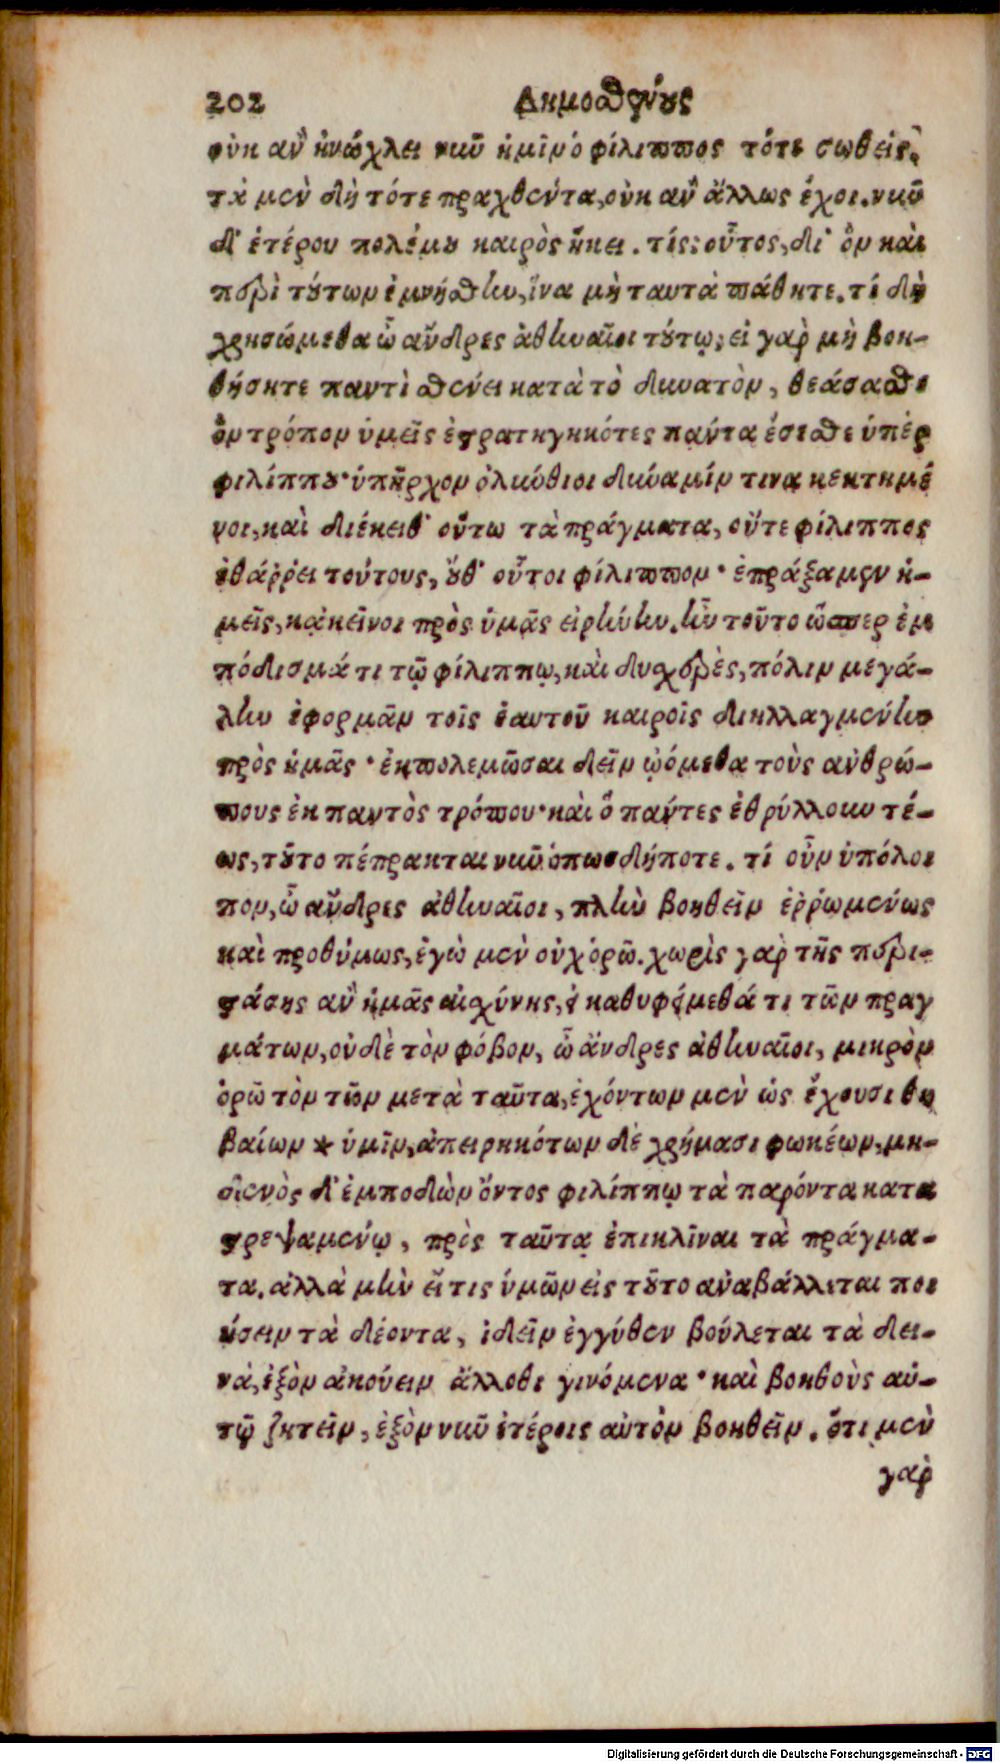 202 Δημοσθένους
οὐκ ἂν ἠνώχλει νῦν ἡμῖν ὁ φίλιππος τότε σωθείς.
τὰ μὲν δὴ τότε πραχθέντα, οὐκ ἂν ἄλλως ἔχοι. νῦν
δ' ἑτέρου πολέμου καιρὸς ἥκει. τίς; οὗτος, δι' ὃν καὶ
περὶ τούτων ἐμνήσθην, ἵνα μὴ ταυτὰ πάθητε. τί δὴ
χρησώμεθα ὦ ἄνδρες ἀθηναῖοι τούτῳ; εἰ γὰρ μὴ βοη-
θήσητε παντὶ σθένει κατὰ τὸ δυνατὸν, θεάσασθε
ὃν τρόπον ὑμεῖς ἐστρατηγηκότες πάντα ἔσεσθε ὑπὲρ
φιλίππου· ὑπῆρχον ὀλύνθιοι δύναμίν τινα κεκτημέ
νοι, καὶ διέκειθ' οὕτω τὰ πράγματα, οὔτε φίλιππος
ἐθάῤῥει τούτους, οὔθ' οὗτοι φίλιππον· ἐπράξαμεν ἡ-
μεῖς, κἀκεῖνοι πρὸς ὑμᾶς εἰρήνην. ἦν τοῦτο ὥσπερ ἐμ
πόδισμά τι τῷ φίλιππῳ, καὶ δυσχερὲς, πόλιν μεγά-
λην ἐφορμᾶν τοῖς ἑαυτοῦ καιροῖς διηλλαγμένην
πρὸς ἡμᾶς· ἐκπολεμῶσαι δεῖν ᾠόμεθα τοὺς ἀνθρώ-
πους ἐκ παντὸς τρόπου· καὶ ὃ πάντες ἐθρύλλουν τέ-
ως, τοῦτο πέπρακται νῦν ὁπωσδήποτε. τί οὖν ὑπόλοι
πον, ὦ ἄνδρες ἀθηναῖοι, πλὴν βοηθεῖν ἐῤῥωμένως
καὶ προθύμως, ἐγὼ μὲν οὐχ ὁρῶ. χωρὶς γὰρ τῆς περι-
στάσης ἂν ἡμᾶς αἰσχύνης, εἰ καθυφείμεθά τι τῶν πραγ
μάτων, οὐδὲ τὸν φόβον, ὦ ἄνδρες ἀθηναῖοι, μικρὸν
ὁρῶ τὸν τῶν μετὰ ταῦτα, ἐχόντων μὲν ὡς ἔχουσι θη
βαίων * ὑμῖν, ἀπειρηκότων δὲ χρήμασι φωκέων, μη-
δενὸς δ' ἐμποδὼν ὄντος φιλίππῳ τὰ παρόντα κατα
στρεψαμένῳ, πρὸς ταῦτα ἐπικλῖναι τὰ πράγμα-
τα. ἀλλὰ μὴν εἴ τις ὑμῶν εἰς τοῦτο ἀναβάλλεται ποι
ήσειν τὰ δέοντα, ἰδεῖν ἐγγύθεν βούλεται τὰ δει-
νὰ, ἐξὸν ἀκούειν ἄλλοθι γινόμενα· καὶ βοηθοὺς αὑ-
τῷ ζητεῖν, ἐξὸν νῦν ἑτέροις αὐτὸν βοηθεῖν. ὅτι μὲν
γὰρ
Digitalisierung gefördert durch die Deutsche Forschungsgemeinschaft - DFG